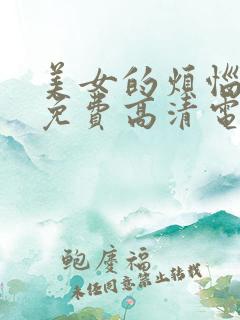 美女的烦恼
免费高清电
鲍庆福
未经同意禁止转载